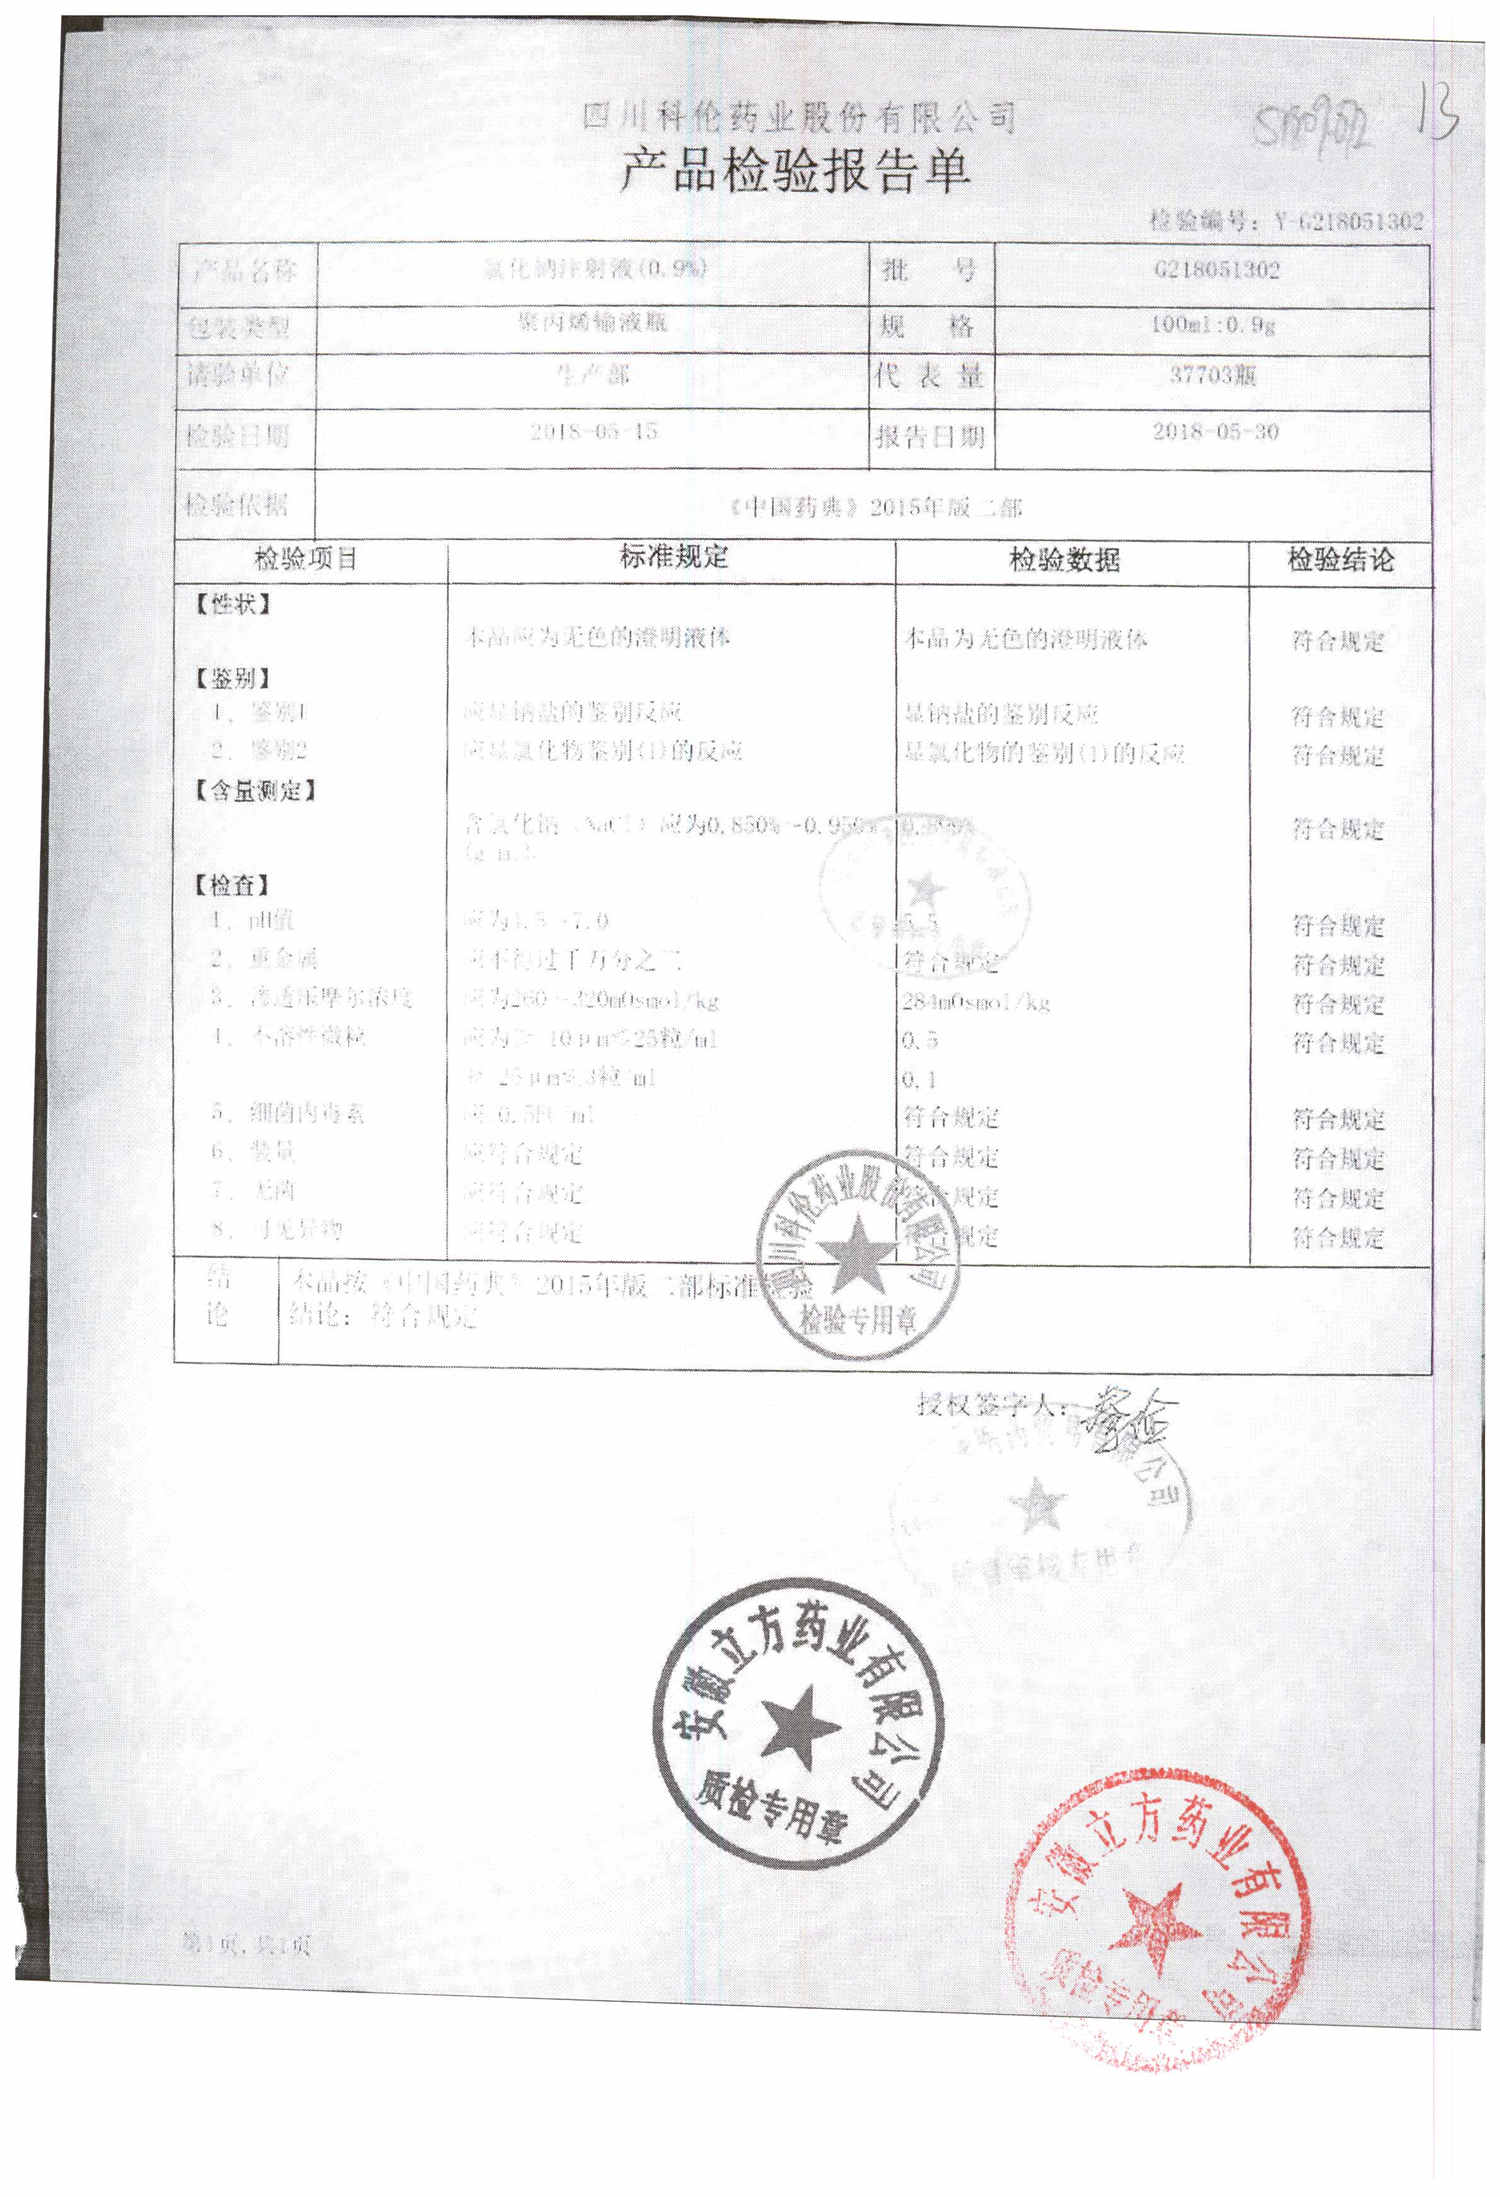 13
四川科伦药业股份有限公司
产品检验报告单
检验编号：Y-G218051302
产品名称 氯化钠注射液(0.9%) 批 号 G218051302
包装类型 聚丙烯输液瓶 规 格 100ml:0.9g
请验单位 生产部 代 表 量 37703瓶
检验日期 2018-05-15 报告日期 2018-05-30
检验依据 《中国药典》2015年版二部
检验项目 标准规定 检验数据 检验结论
【性状】
本品应为无色的澄明液体 本品为无色的澄明液体 符合规定
【鉴别】
1、鉴别1 应显钠盐的鉴别反应 显钠盐的鉴别反应 符合规定
2、鉴别2 应显氯化物鉴别(1)的反应 显氯化物的鉴别(1)的反应 符合规定
【含量测定】
含氯化钠（NaCl）应为0.850%-0.950% 符合规定
(g/ml)
【检查】
1、pH值 应为4.5-7.0 5.5 符合规定
2、重金属 应不得过千万分之三 符合规定 符合规定
3、渗透压摩尔浓度 应为260-320mOsmol/kg 284mOsmol/kg 符合规定
4、不溶性微粒 应为≥10μm≤25粒/ml 0.5 符合规定
≥25μm≤3粒/ml 0.1
5、细菌内毒素 0.5EU/ml 符合规定 符合规定
6、装量 应符合规定 符合规定 符合规定
7、无菌 应符合规定 符合规定 符合规定
8、可见异物 应符合规定 符合规定 符合规定
结论 本品按《中国药典》2015年版二部标准检验
结论：符合规定
四川科伦药业股份有限公司
检验专用章
授权签字人：
安徽立方药业有限公司
质检专用章
安徽立方药业有限公司
质检专用章
第1页,共1页